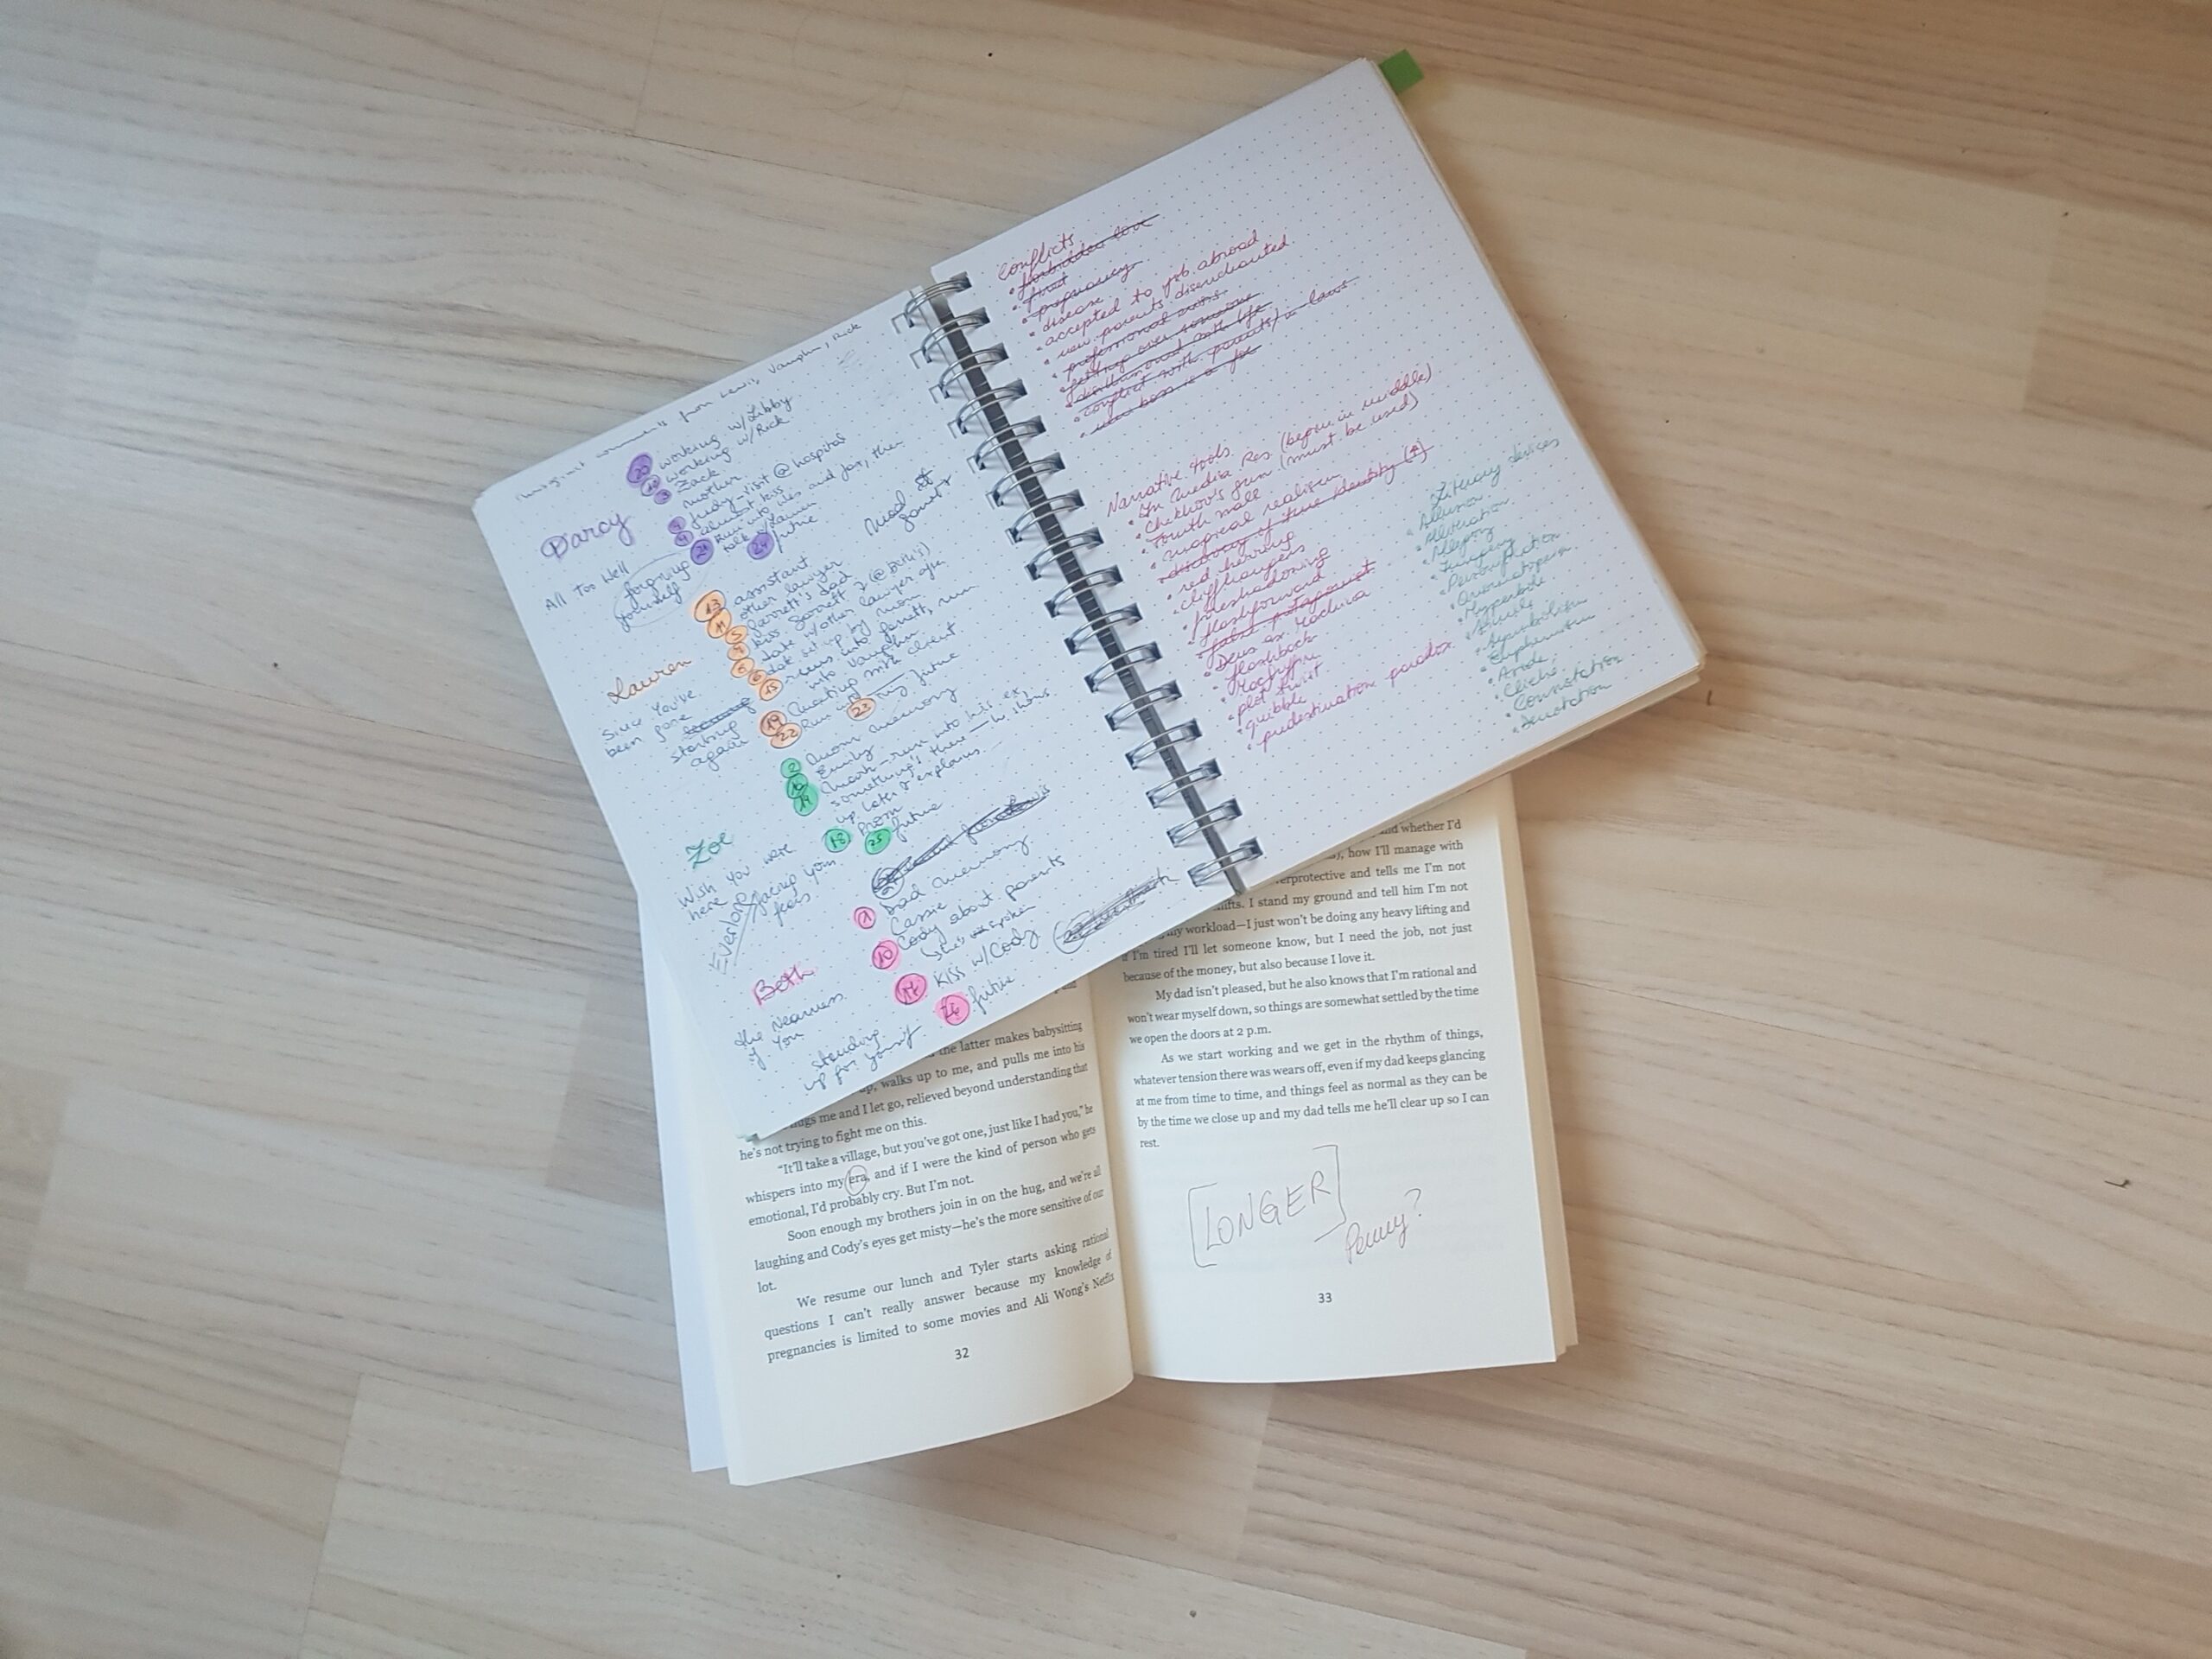 misogynist comments from Lewis, Vaughn, Rick
Darcy
All Too Well
forgiving
yourself
20 working w/Libby
working w/Rick
3 Zack
mother
Judy - visit @ hospital
almost kiss
21 Run into and Jax, then
talk w/Lauren
24 future
need of
Lauren
Since You've
been gone
starting
again
13 assistant
11 other lawyer
5 Garrett's dad
kiss Garrett 2 (@Beth's)
date w/other lawyer after
6 date set up by mom
15 runs into Garrett, run
into Vaughn
19 Meeting with client
22 Run into
23 future
Zoe
Wish you were
here
facing your
fears
2 Mom memory
16 Emily
14 Noah - run into his ex
something's there - he shows
up later & explains.
18 Prom
25 future
Beth
The Nearness
of You
standing
up for yourself
Everlong
1 Dad memory
Cassie
10 Cody about parents
she's spoken
17 Kiss w/Cody
26 future
Conflicts
• forbidden love
• trust
• pregnancy
• disease
• accepted to job abroad
• new parents disenchanted
• professional
• getting over someone
• disillusioned with life
• conflict with parents/in-laws
• new boss is a
Narrative tools
• In Media Res (begin in middle)
• Chekhov's gun (must be used)
• Fourth wall
• magical realism
• discovery of true identity (?)
• red herring
• cliffhangers
• foreshadowing
• flashforward
• false protagonist
• Deus ex Machina
• flashback
• plot twist
• quibble
• predestination paradox
Literary devices
• Allusion
• Alliteration
• Allegory
• Imagery
• Personification
• Onomatopeia
• Hyperbole
• Simile
• Symbolism
• Euphemism
• Cliché
• Connotation
• Denotation
the latter makes babysitting
up, walks up to me, and pulls me into his
hugs me and I let go, relieved beyond understanding that
he's not trying to fight me on this.
"It'll take a village, but you've got one, just like I had you," he
whispers into my era, and if I were the kind of person who gets
emotional, I'd probably cry. But I'm not.
Soon enough my brothers join in on the hug, and we're all
laughing and Cody's eyes get misty—he's the more sensitive of our
lot.
We resume our lunch and Tyler starts asking rational
questions I can't really answer because my knowledge of
pregnancies is limited to some movies and Ali Wong's Netflix
32
and whether I'd
how I'll manage with
overprotective and tells me I'm not
I stand my ground and tell him I'm not
my workload—I just won't be doing any heavy lifting and
if I'm tired I'll let someone know, but I need the job, not just
because of the money, but also because I love it.
My dad isn't pleased, but he also knows that I'm rational and
won't wear myself down, so things are somewhat settled by the time
we open the doors at 2 p.m.
As we start working and we get in the rhythm of things,
whatever tension there was wears off, even if my dad keeps glancing
at me from time to time, and things feel as normal as they can be
by the time we close up and my dad tells me he'll clear up so I can
rest.
[LONGER]
Penny?
33